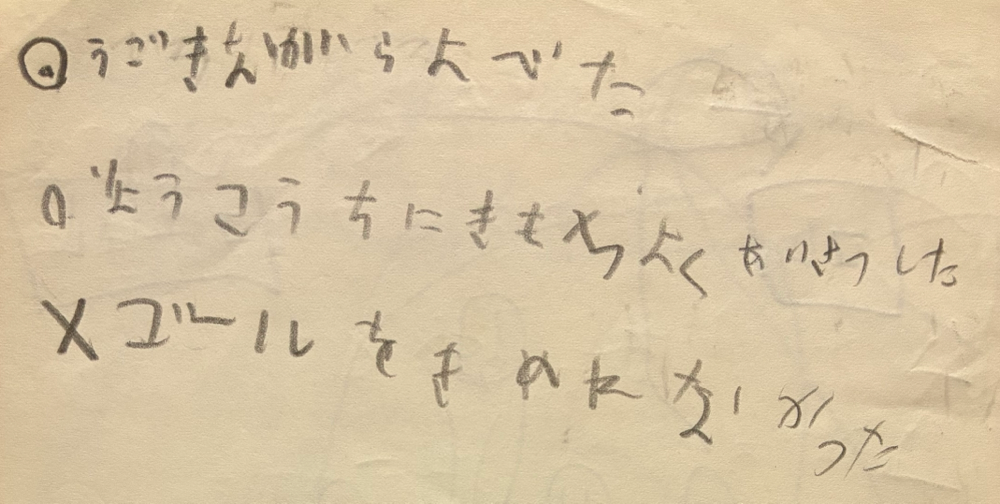 ◎うごきながらよべた
○じょうこうちにきもちよくあいさつした
×ゴールをきめれなかった